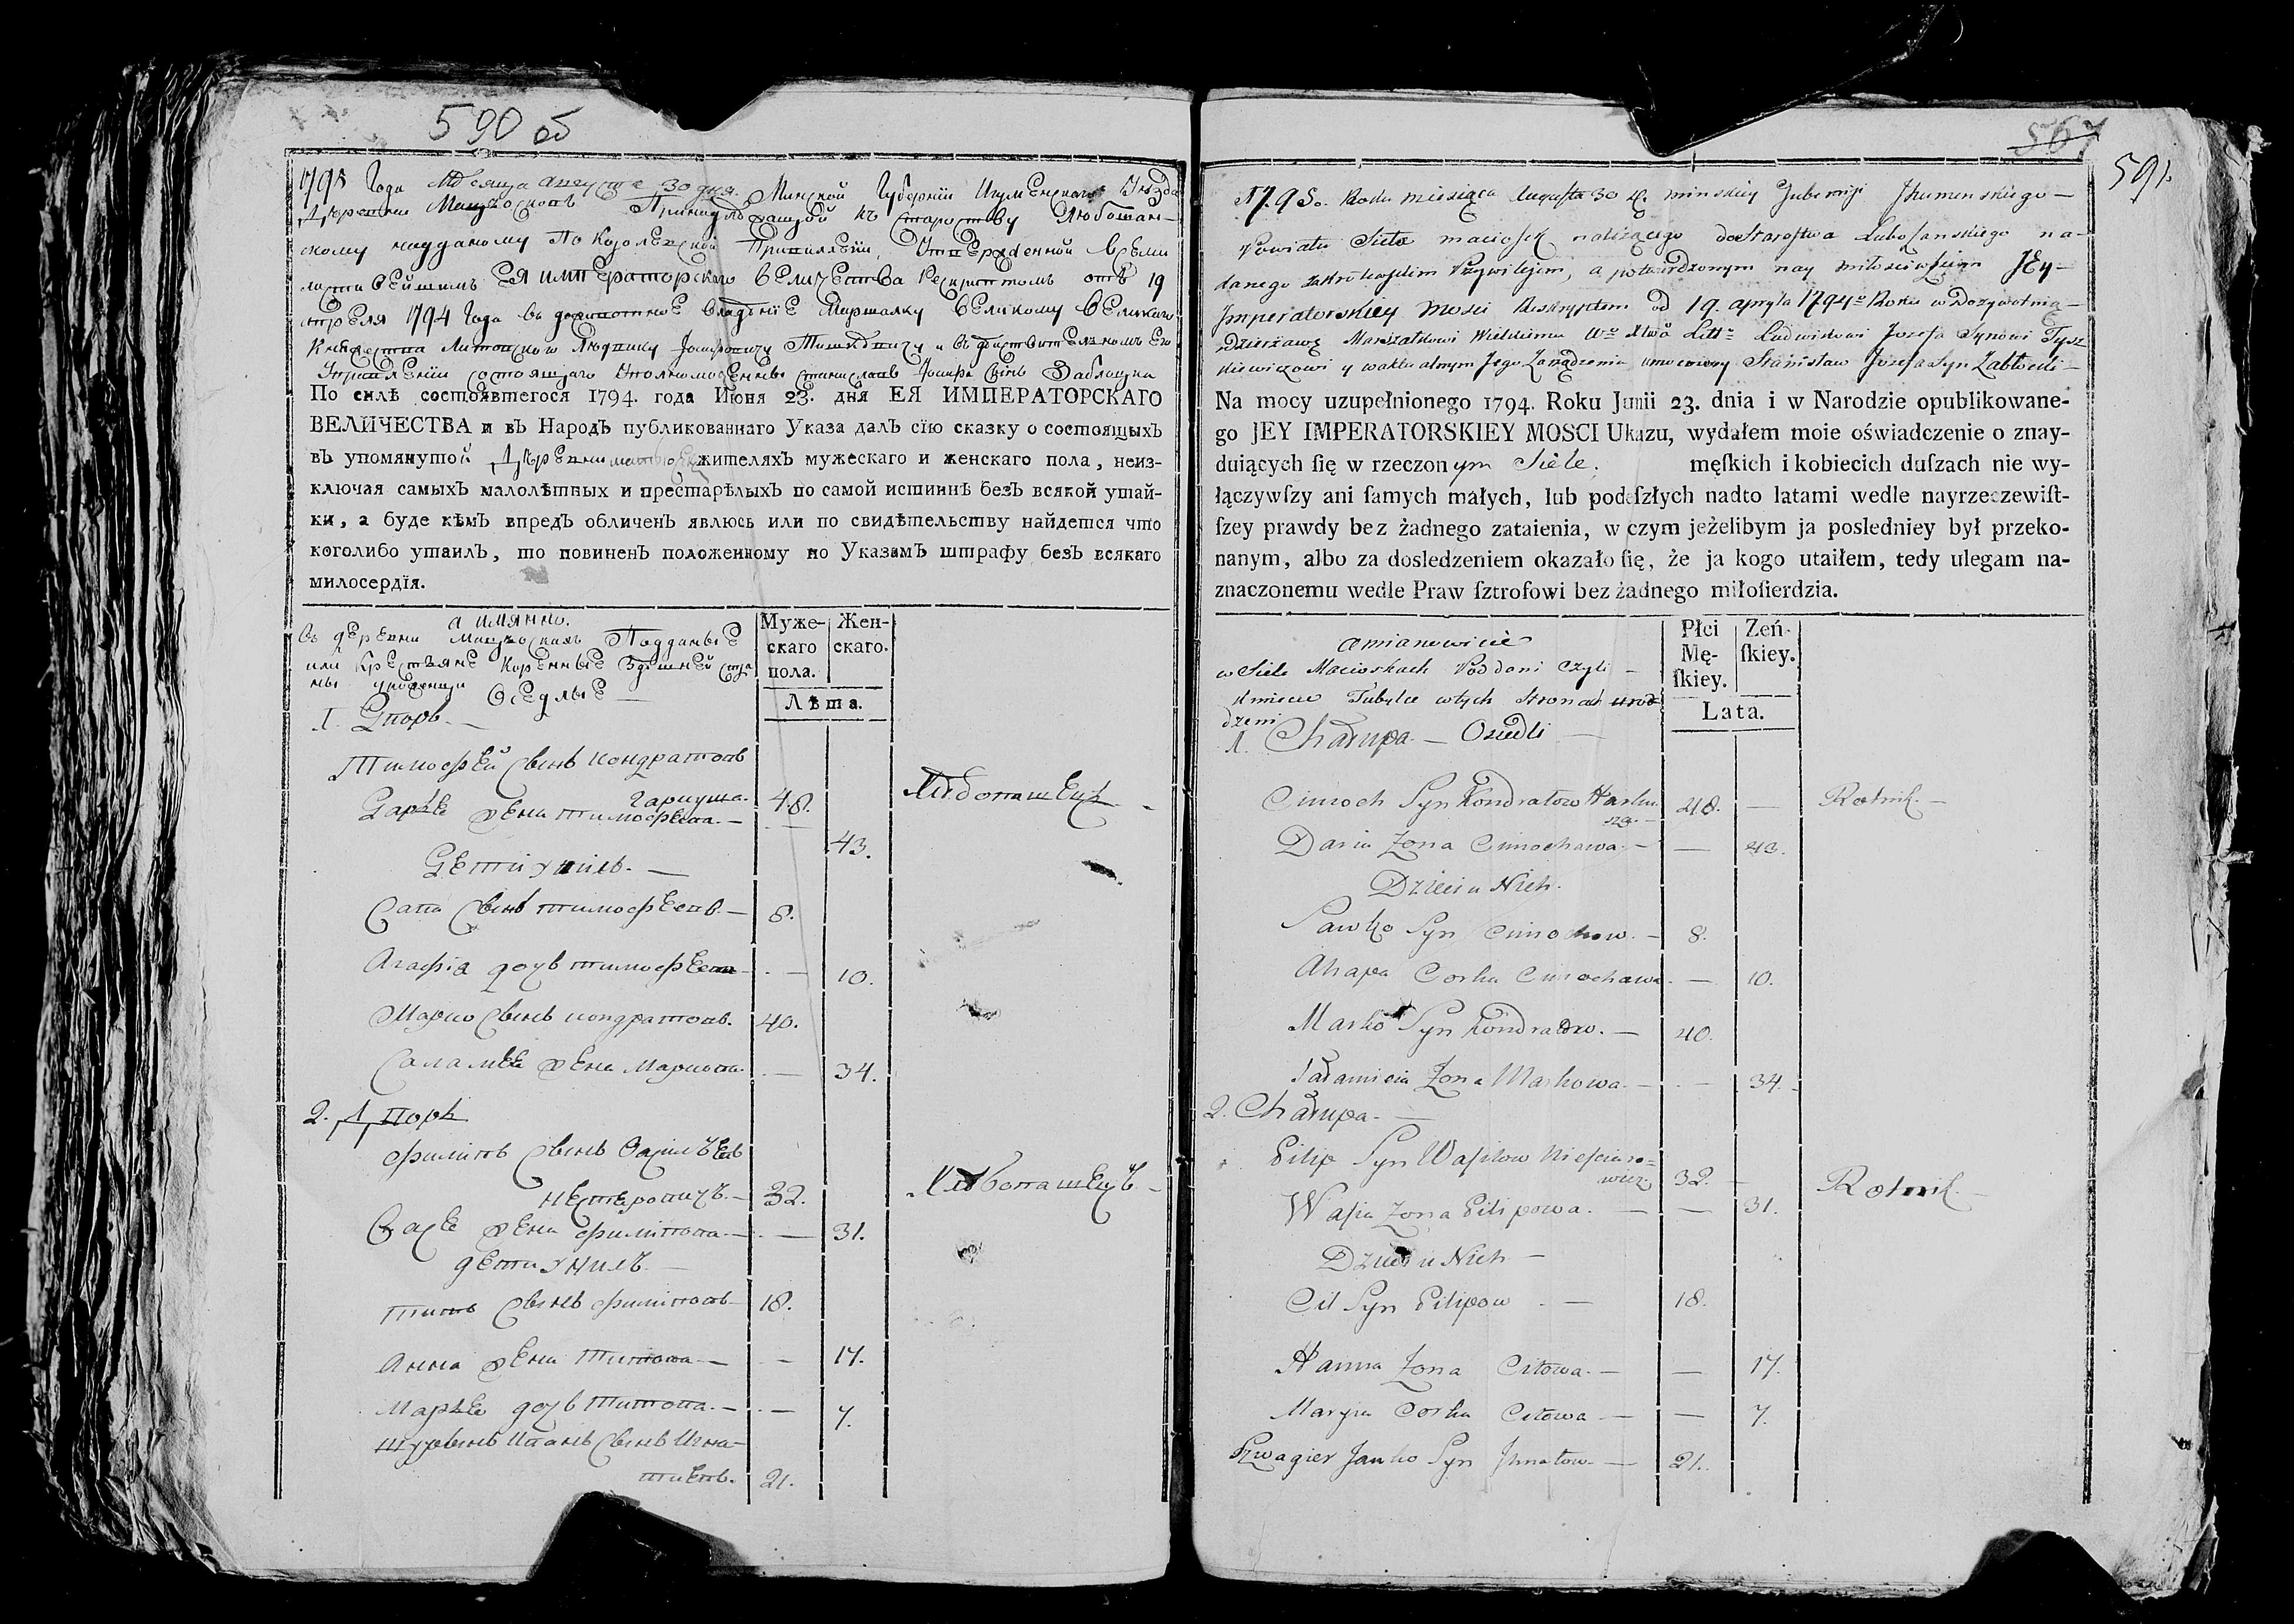 590 об
1795 Года Месяца Августа 30 дня Минской Губернїи Игуменскаго Уезда
Принадлежащой къ староству Любошан-
скому наданому По Королевской Привиллегїи,
ЕЯ ИМПЕРаторскаго Величества Рескриптомъ отъ 19
апреля 1794 Года въ Владенїе Маршалку Великому Великаго
Княжества Литовского Людвику Iосифовичу Тишкевичу
Станиславъ Iосифа Сынъ Заблоцки
По силѣ состоявшегося 1794. года Июня 23. дня ЕЯ ИМПЕРАТОРСКАГО
ВЕЛИЧЕСТВА и въ Народъ публикованнаго Указа далъ сїю сказку о состоящыхъ
въ упомянутой Деревни жителяхъ мужескаго и женскаго пола, неиз-
ключая самыхъ малолѣтных и престарѣлыхъ по самой истиннѣ безъ всякой утай-
ки, а буде кѣмъ впредъ обличенъ явлюсь или по свидѣтельству найдется что
коголибо утаилъ, то повиненъ положенному по Указамъ штрафу безъ всякаго
милосердїя.
а имянно.
въ деревни Подданые
или Крестьяне Коренные Здешней стра
ны
Оседлые —
Муже-
скаго
пола.
Жен-
скаго.
Лѣта.
1. Дворъ. —
Тимофей Сынъ Кондратовъ
Гаркуша. 48.
Дарья жена Тимофеева. — 43.
Дети у нихъ. —
Сава Сынъ Тимофеевъ. — 8.
Агафiя дочь Тимофеева — 10.
Марко Сынъ Кондратовъ. 40.
Саламея жена Маркова — 34.
2. Дворъ
Филипъ Сынъ Василъевъ
Нестеровичъ. — 32.
Васа жена Филипова. — 31.
дети у нихъ. —
Титъ Сынъ Филиповъ — 18.
Анна жена Титова — 17.
Марья дочь Титова. — 7.
Шуринъ Иванъ Сынъ Игна-
тьевъ. 21.
567
591.
1795o. Roku miesiąca Augusta 30 d. minskiey Gubernij Jhumenskiego —
Powiatu Sieła maciosek należącego do Starostwa Luboszanskiego na-
danego za Krolewskim Przywilejem, a potwierdzonym nay miłościwszym JEy-
Jmperatorskiey Mosci Reskryptem od 19. apryla 1794o Roku w Dozywotnią —
dzierżawę Marszałkowi Wielkiemu Wo Xtwa Litto Ludwikowi Jozefa Synowi Tysz
kiewiczowi y w aktualnym Jego Zarządzeniu, umocowany Stanisław Jozefa Syn Zabłocki —
Na mocy uzupełnionego 1794. Roku Junii 23. dnia i w Narodzie opublikowane-
go JEY IMPERATORSKIEY MOSCI Ukazu, wydałem moie oświadczenie o znay-
duiących ſię w rzeczonym Siele. męſkich i kobiecich duſzach nie wy-
łączywſzy ani ſamych małych, lub podeſzłych nadto latami wedle nayrzeczewiſt-
ſzey prawdy bez żadnego zataienia, w czym jeżelibym ja posledniey był przeko-
nanym, albo za dosledzeniem okazało ſię, że ja kogo utaiłem, tedy ulegam na-
znaczonemu wedle Praw ſztrofowi bez żadnego miłoſierdzia.
amianowicie
w Siele Macioskach Poddani czyli —
Kmiecie Tubylce w tych Stronach urod
dzeni
Płci
Mę-
ſkiey.
Zeń-
ſkiey.
Lata.
1. Chałupa. — Osiedli —
Cimoch Syn Kondratow Harku
sza. — 48. — Rolnik. —
Daria Zona Cimochawa. — — 43.
Dzieci u Nich.
Sawko Syn Cimochow. — 8.
Ahapa Corka Cimochawa. — 10.
Marko Syn Kondratow. — 40.
Sałamieia Zona Markowa. — — 34. —
2. Chałupa. —
Filip Syn Wasilow Niesciero-
wicz. 32. — Rolnik. —
Wasia Zona Filipowa. — — 31.
Dzieci u Nich —
Cit Syn Filipow — 18.
Hanna Zona Citowa. — — 17.
Maryia Corka Citowa — — 7.
Szwagier Janko Syn Jhnatow — 21.